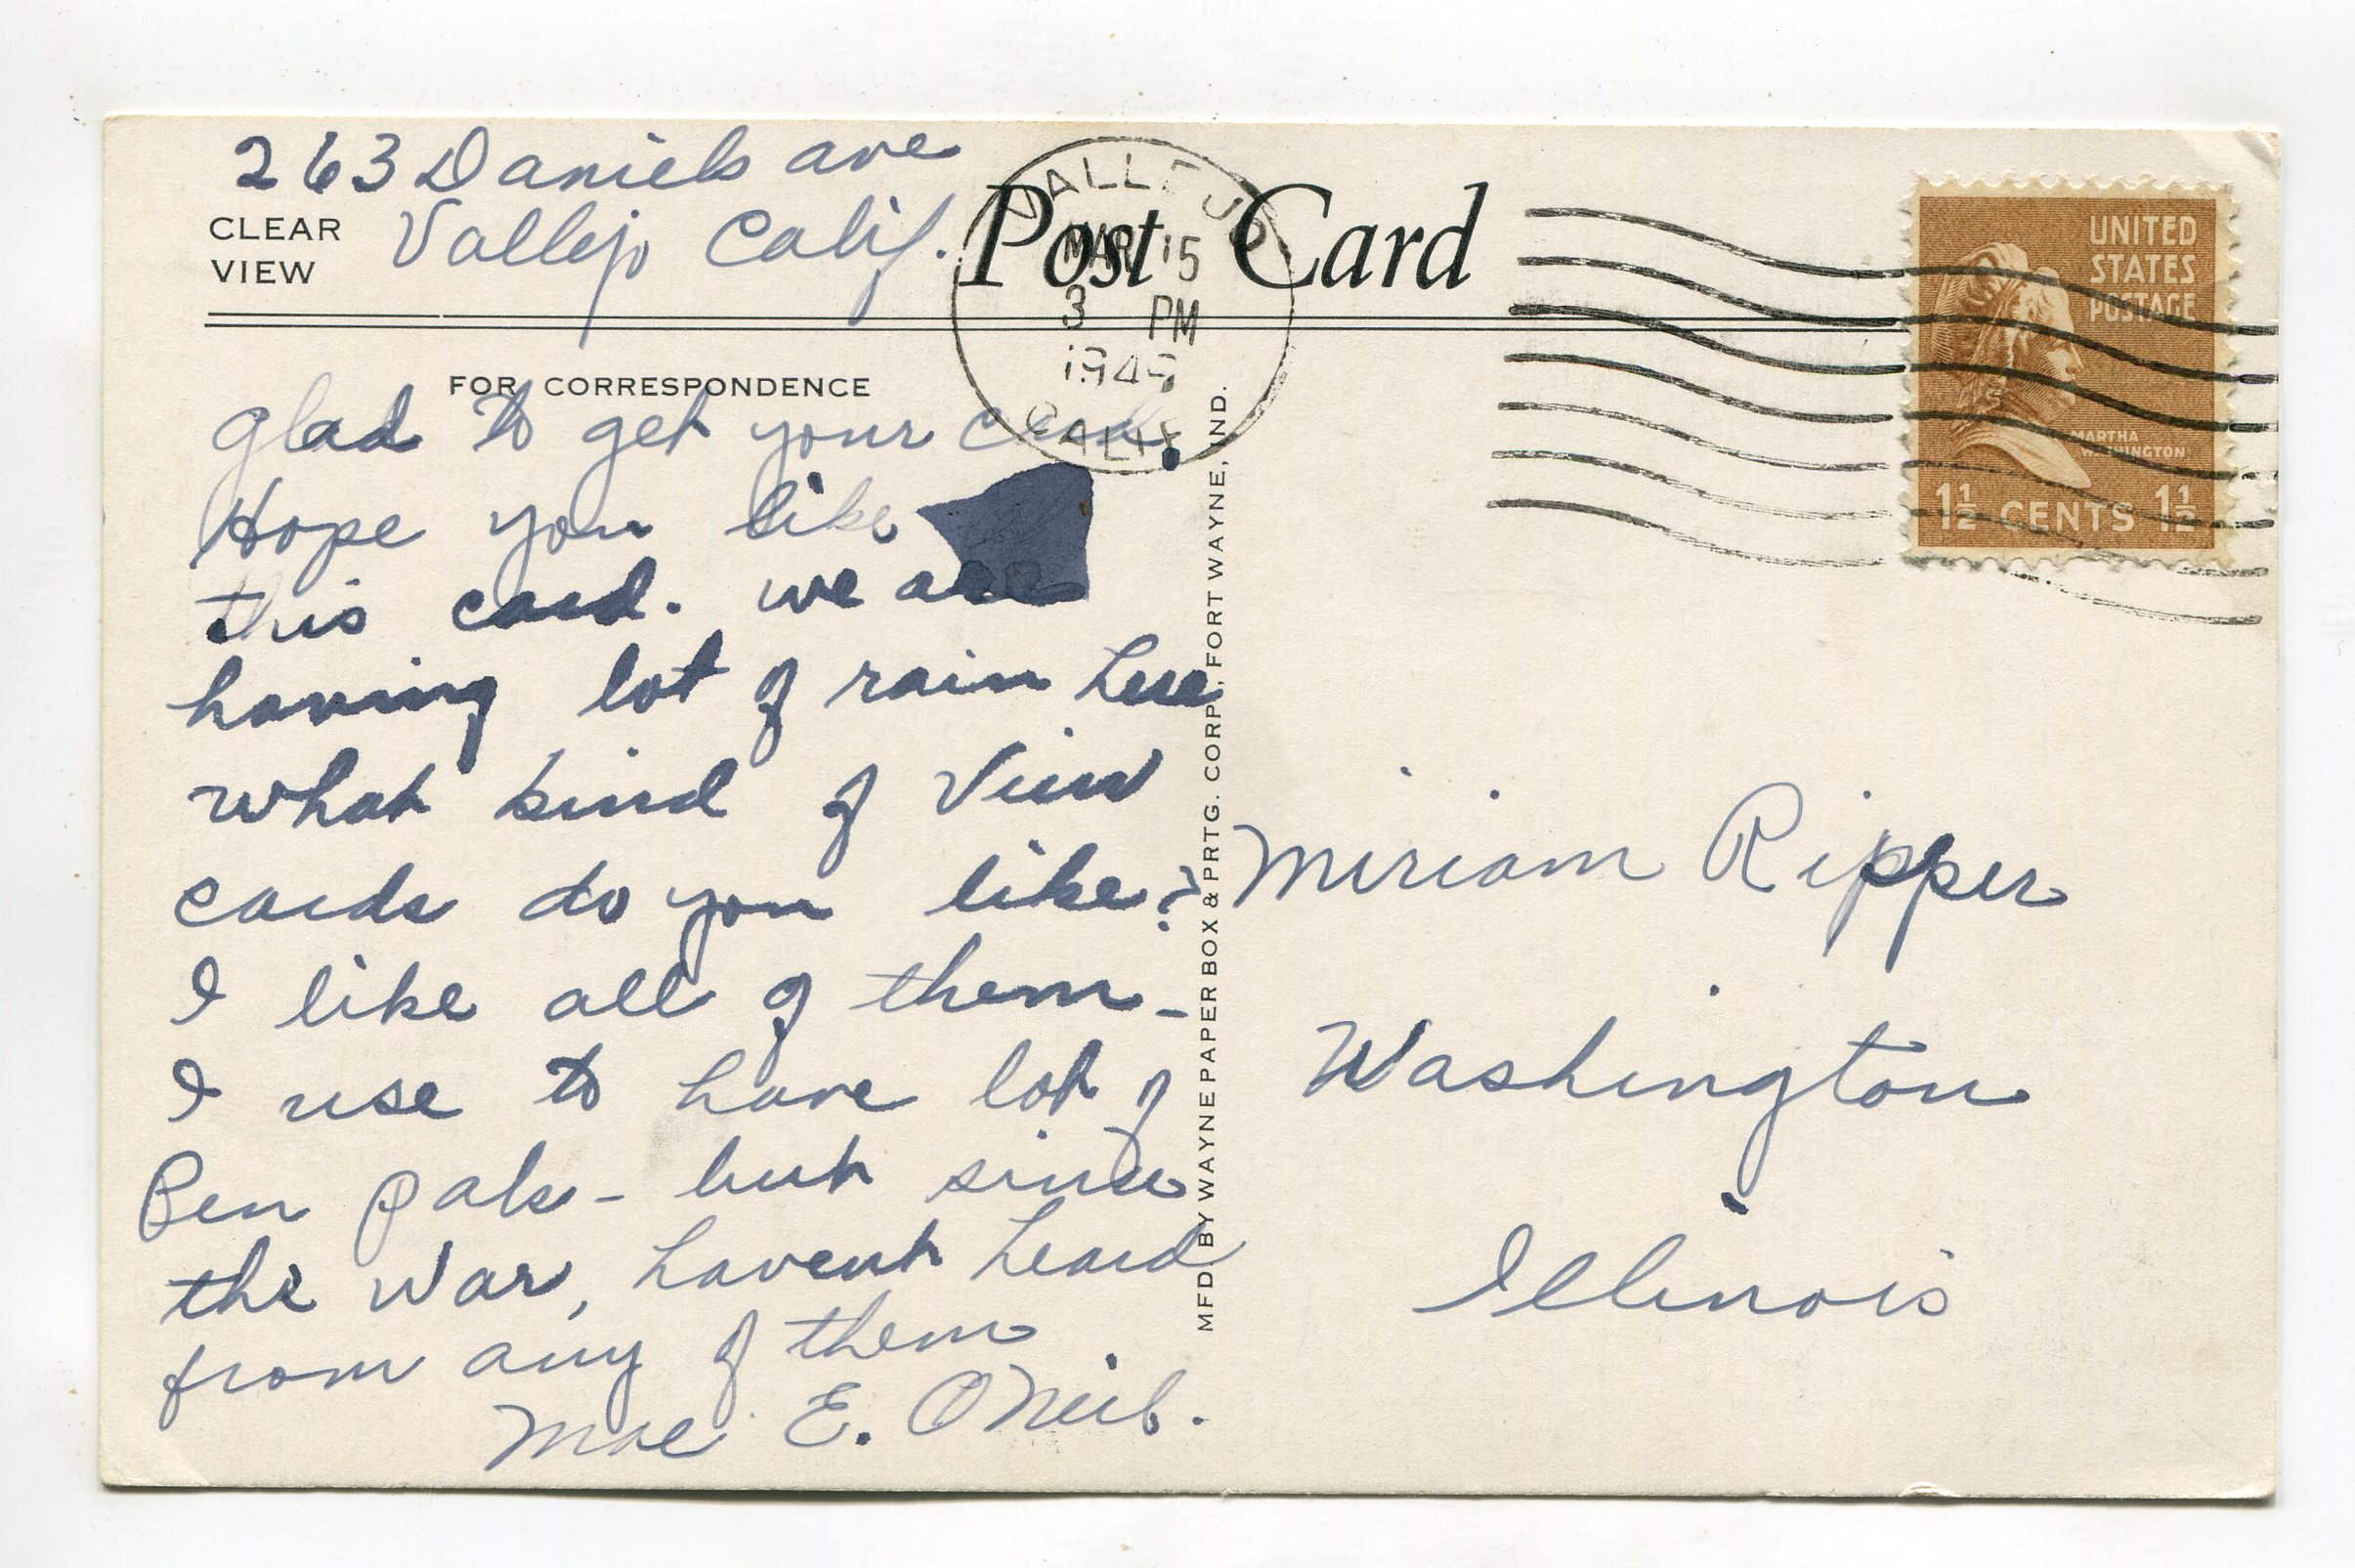 263 Daniels ave
CLEAR VIEW
Vallejo Calif.
Post Card
VALLEJO
MAR 15
3 PM
CALIF
UNITED
STATES
POSTAGE
MARTHA
WASHINGTON
1½ CENTS 1½
FOR CORRESPONDENCE
glad to get your card.
Hope you like
this card. we are
having lot of rain here
what kind of View
cards do you like?
I like all of them -
I use to have lot of
Pen pals - but since
the War, havent heard
from any of them
Mae E. ONeil.
MFD BY WAYNE PAPER BOX & PRTG. CORP., FORT WAYNE, IND.
Miriam Ripper
Washington
Illinois